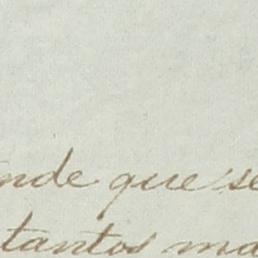 nde que se
tantos ma